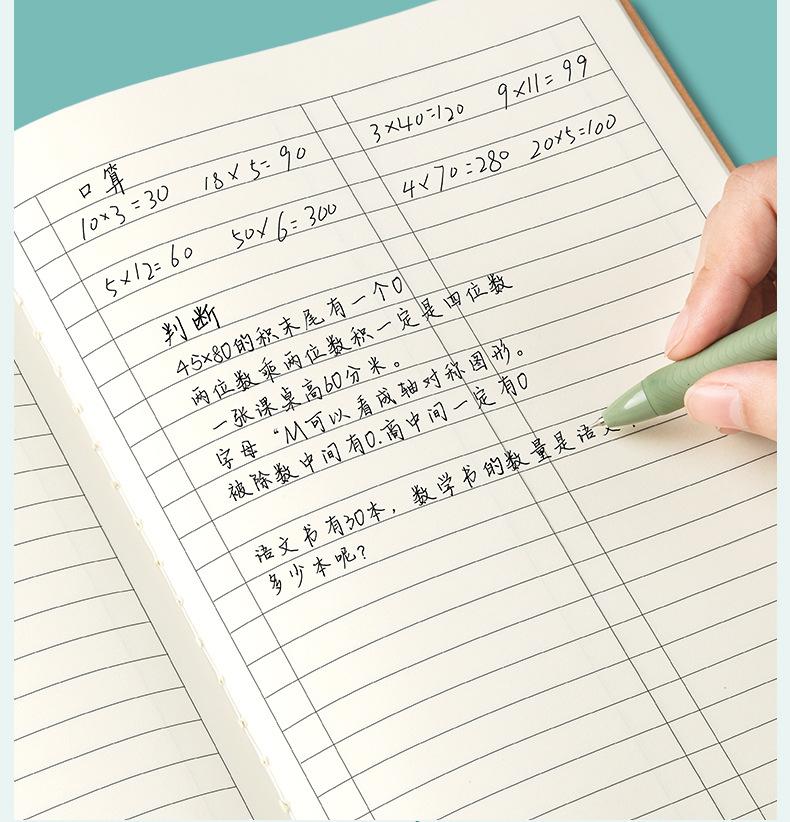 口算
10×3=30 18×5=90 3×40=120 9×11=99
5×12=60 50×6=300 4×70=280 20×5=100
判断
45×80的积末尾有一个0
两位数乘两位数积一定是四位数
一张课桌高60分米。
字母“M可以看成轴对称图形。
被除数中间有0.商中间一定有0
语文书有30本，数学书的数量是语文
多少本呢?